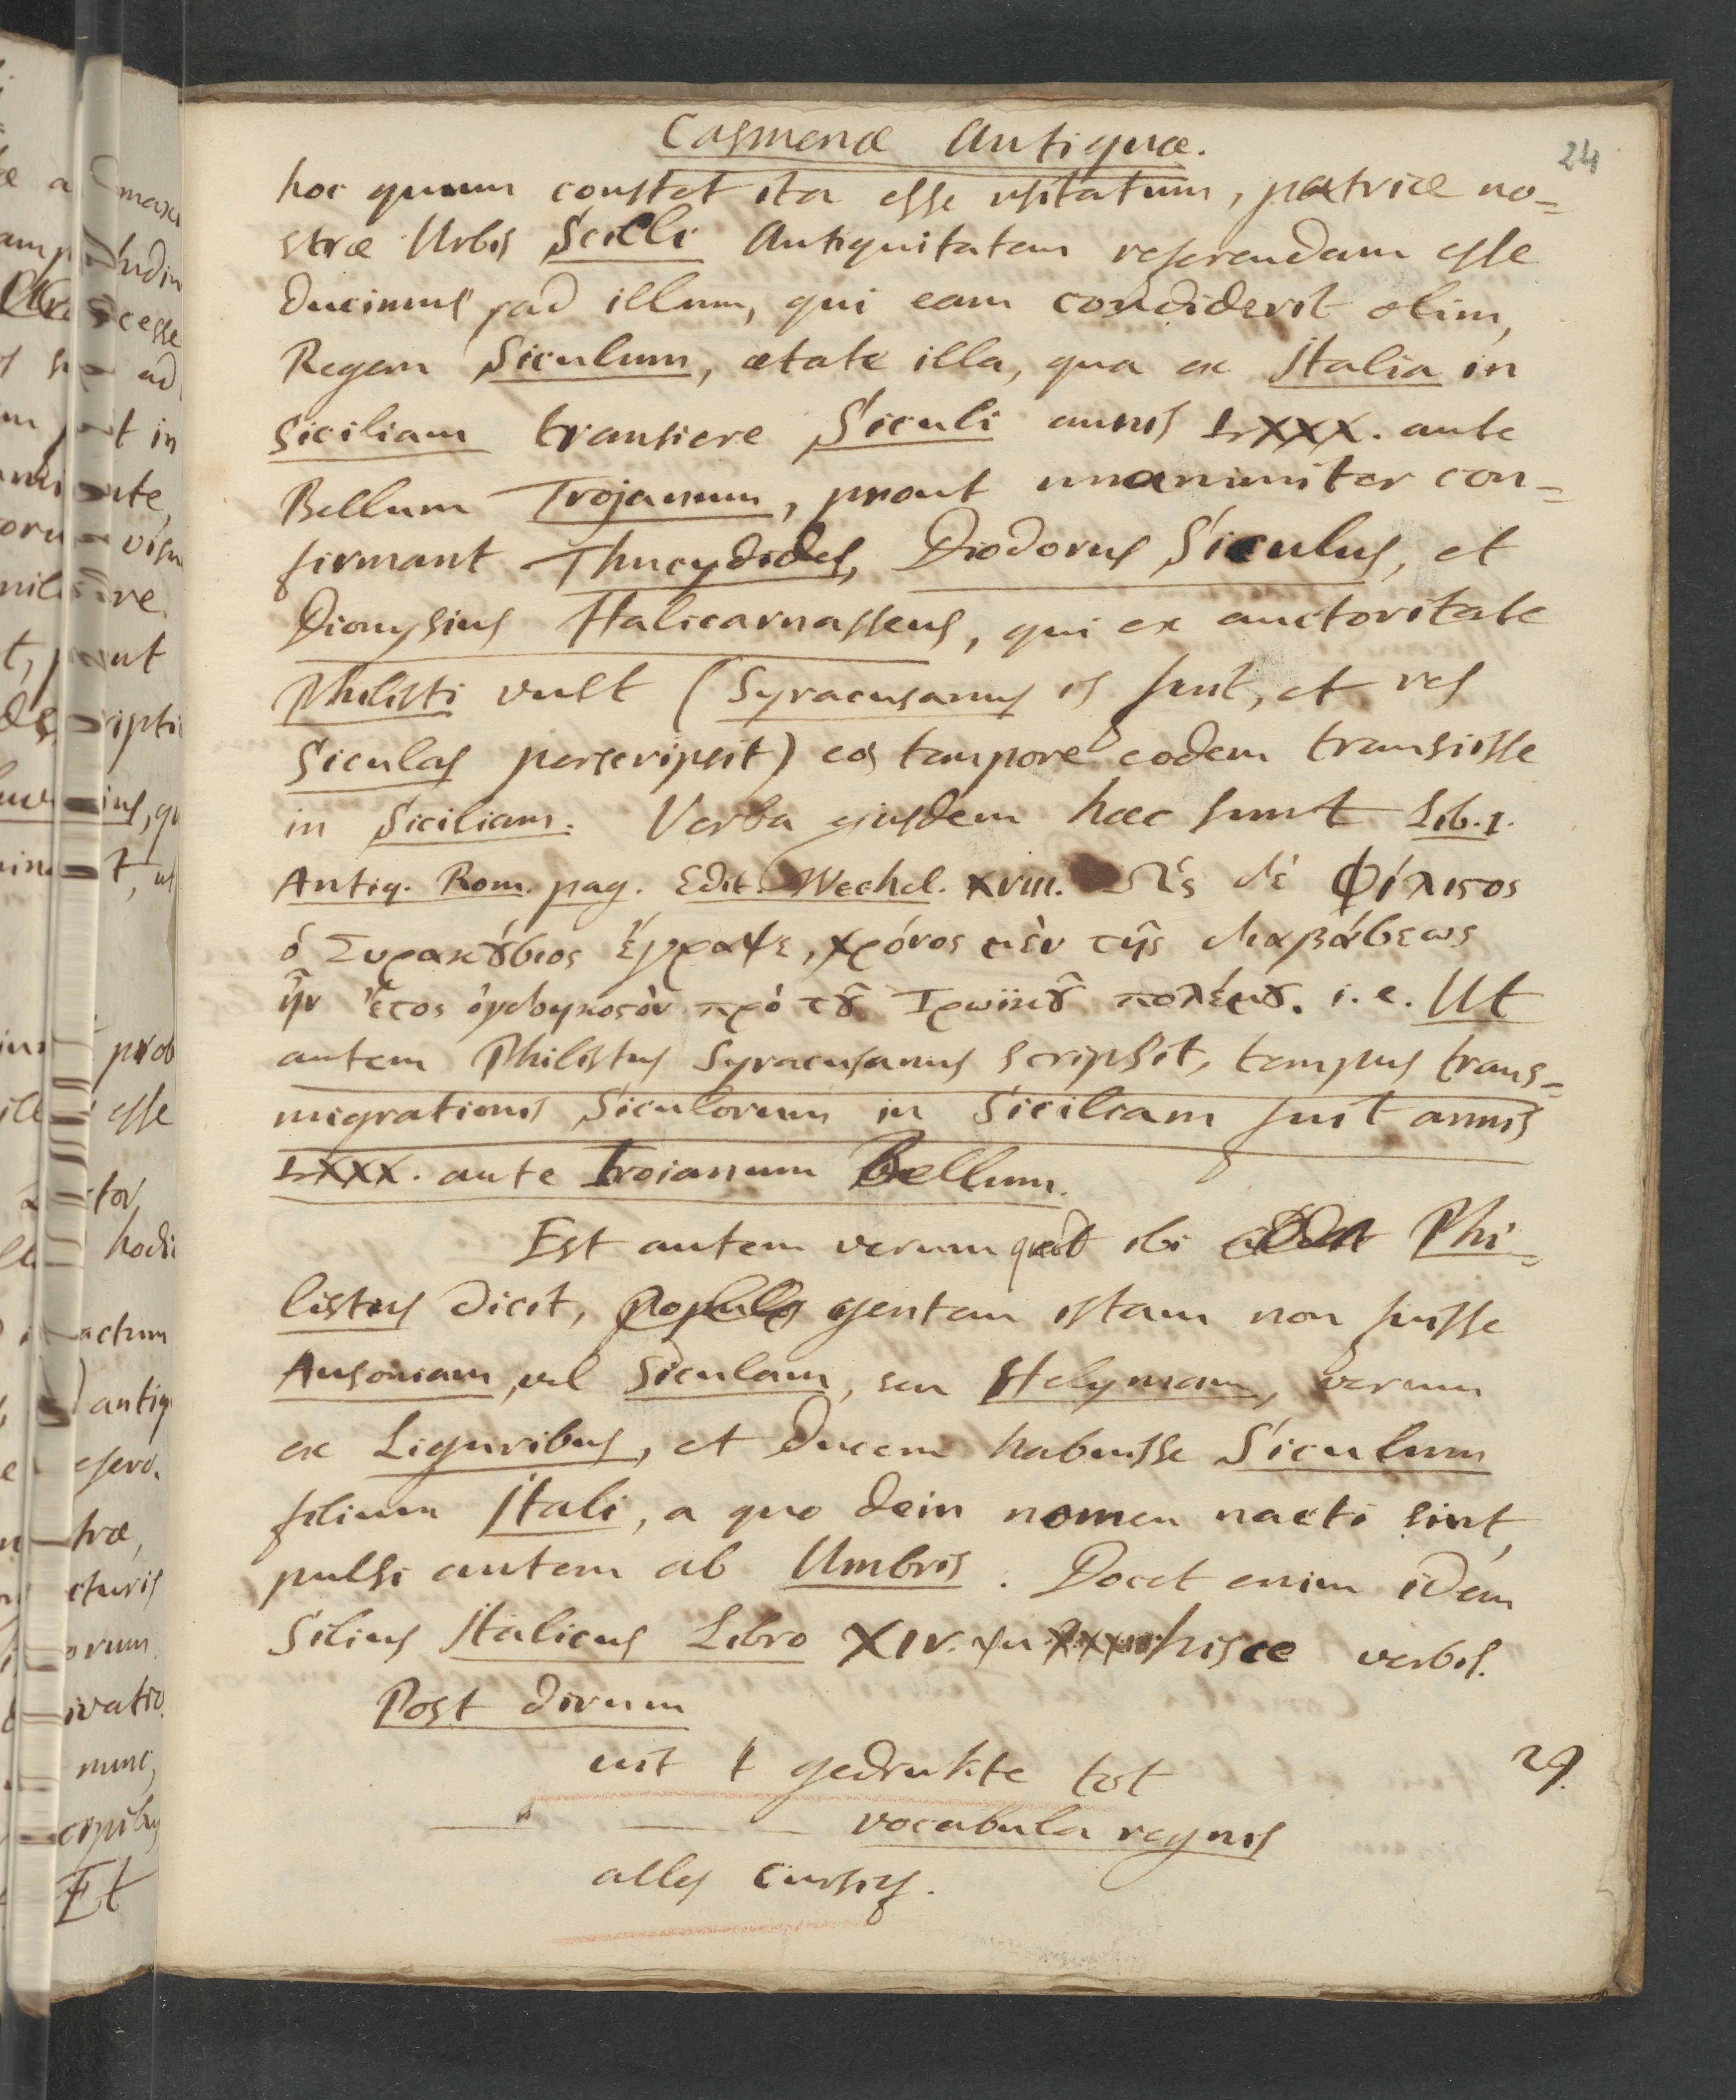 Casmenæ Antiquæ.
24
hoc quum constet ita esse usitatum, patriæ no=
stræ Urbis Sicli Antiquitatem referendam esse
ducimus ad illum, qui eam condiderit olim,
Regem Siculum, ætate illa, qua ex Italia in
Siciliam transiere Siculi annis LXXX. ante
Bellum Trojanum, prout unanimiter con=
firmant Thucydides, Diodorus Siculus, et
Dionysius Halicarnasseus, qui ex auctoritate
Philisti vult (Syracusanus is fuit, et res
Siculas perscripsit) eos tempore eodem transiisse
in Siciliam. Verba ejusdem hæc sunt Lib. I.
Antiq. Rom. pag. Edit. Wechel. XVIII. Ὡς δὲ Φίλιϛος
ὁ Συρακȣ́σιος ἔγραψε, χρόνος μὲν τῆς διαβάσεως
ἦν ἔτος ὀγδοηκοϛὸν πρὸ τȣ͂ Τρωϊκȣ͂ πολέμȣ. i. e. Ut
autem Philistus Syracusanus scripsit, tempus trans=
migrationis Siculorum in Siciliam fuit annis
LXXX. ante Troianum Bellum.
Est autem verum quod ibi Phi=
listus dicit, gentem istam non fuisse
Ausoniam, vel Siculam, seu Helymam, verum
ex Liguribus, et Ducem habuisse Siculum
filium Itali, a quo dein nomen nacti sint,
pulsi autem ab Umbris. Docet enim idem
Silius Italicus Libro XIV. hisce verbis.
Post dirum
uit 't gedrukte tot
29.
vocabula regnis
alles cursif.